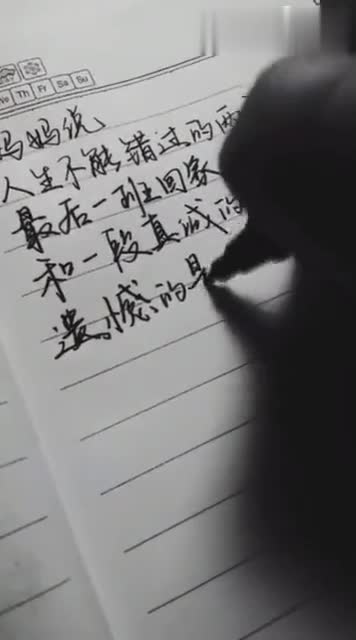 We Th Fr Sa Su
妈妈说
人生不能错过的两
最后一班回家
和一段真诚的
遗憾的是